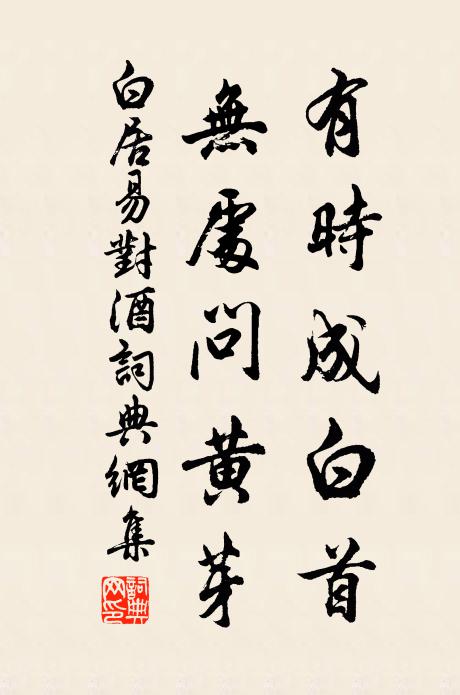 有時成白首
無處問黄芽
白居易對酒詞典網集
詞典網印